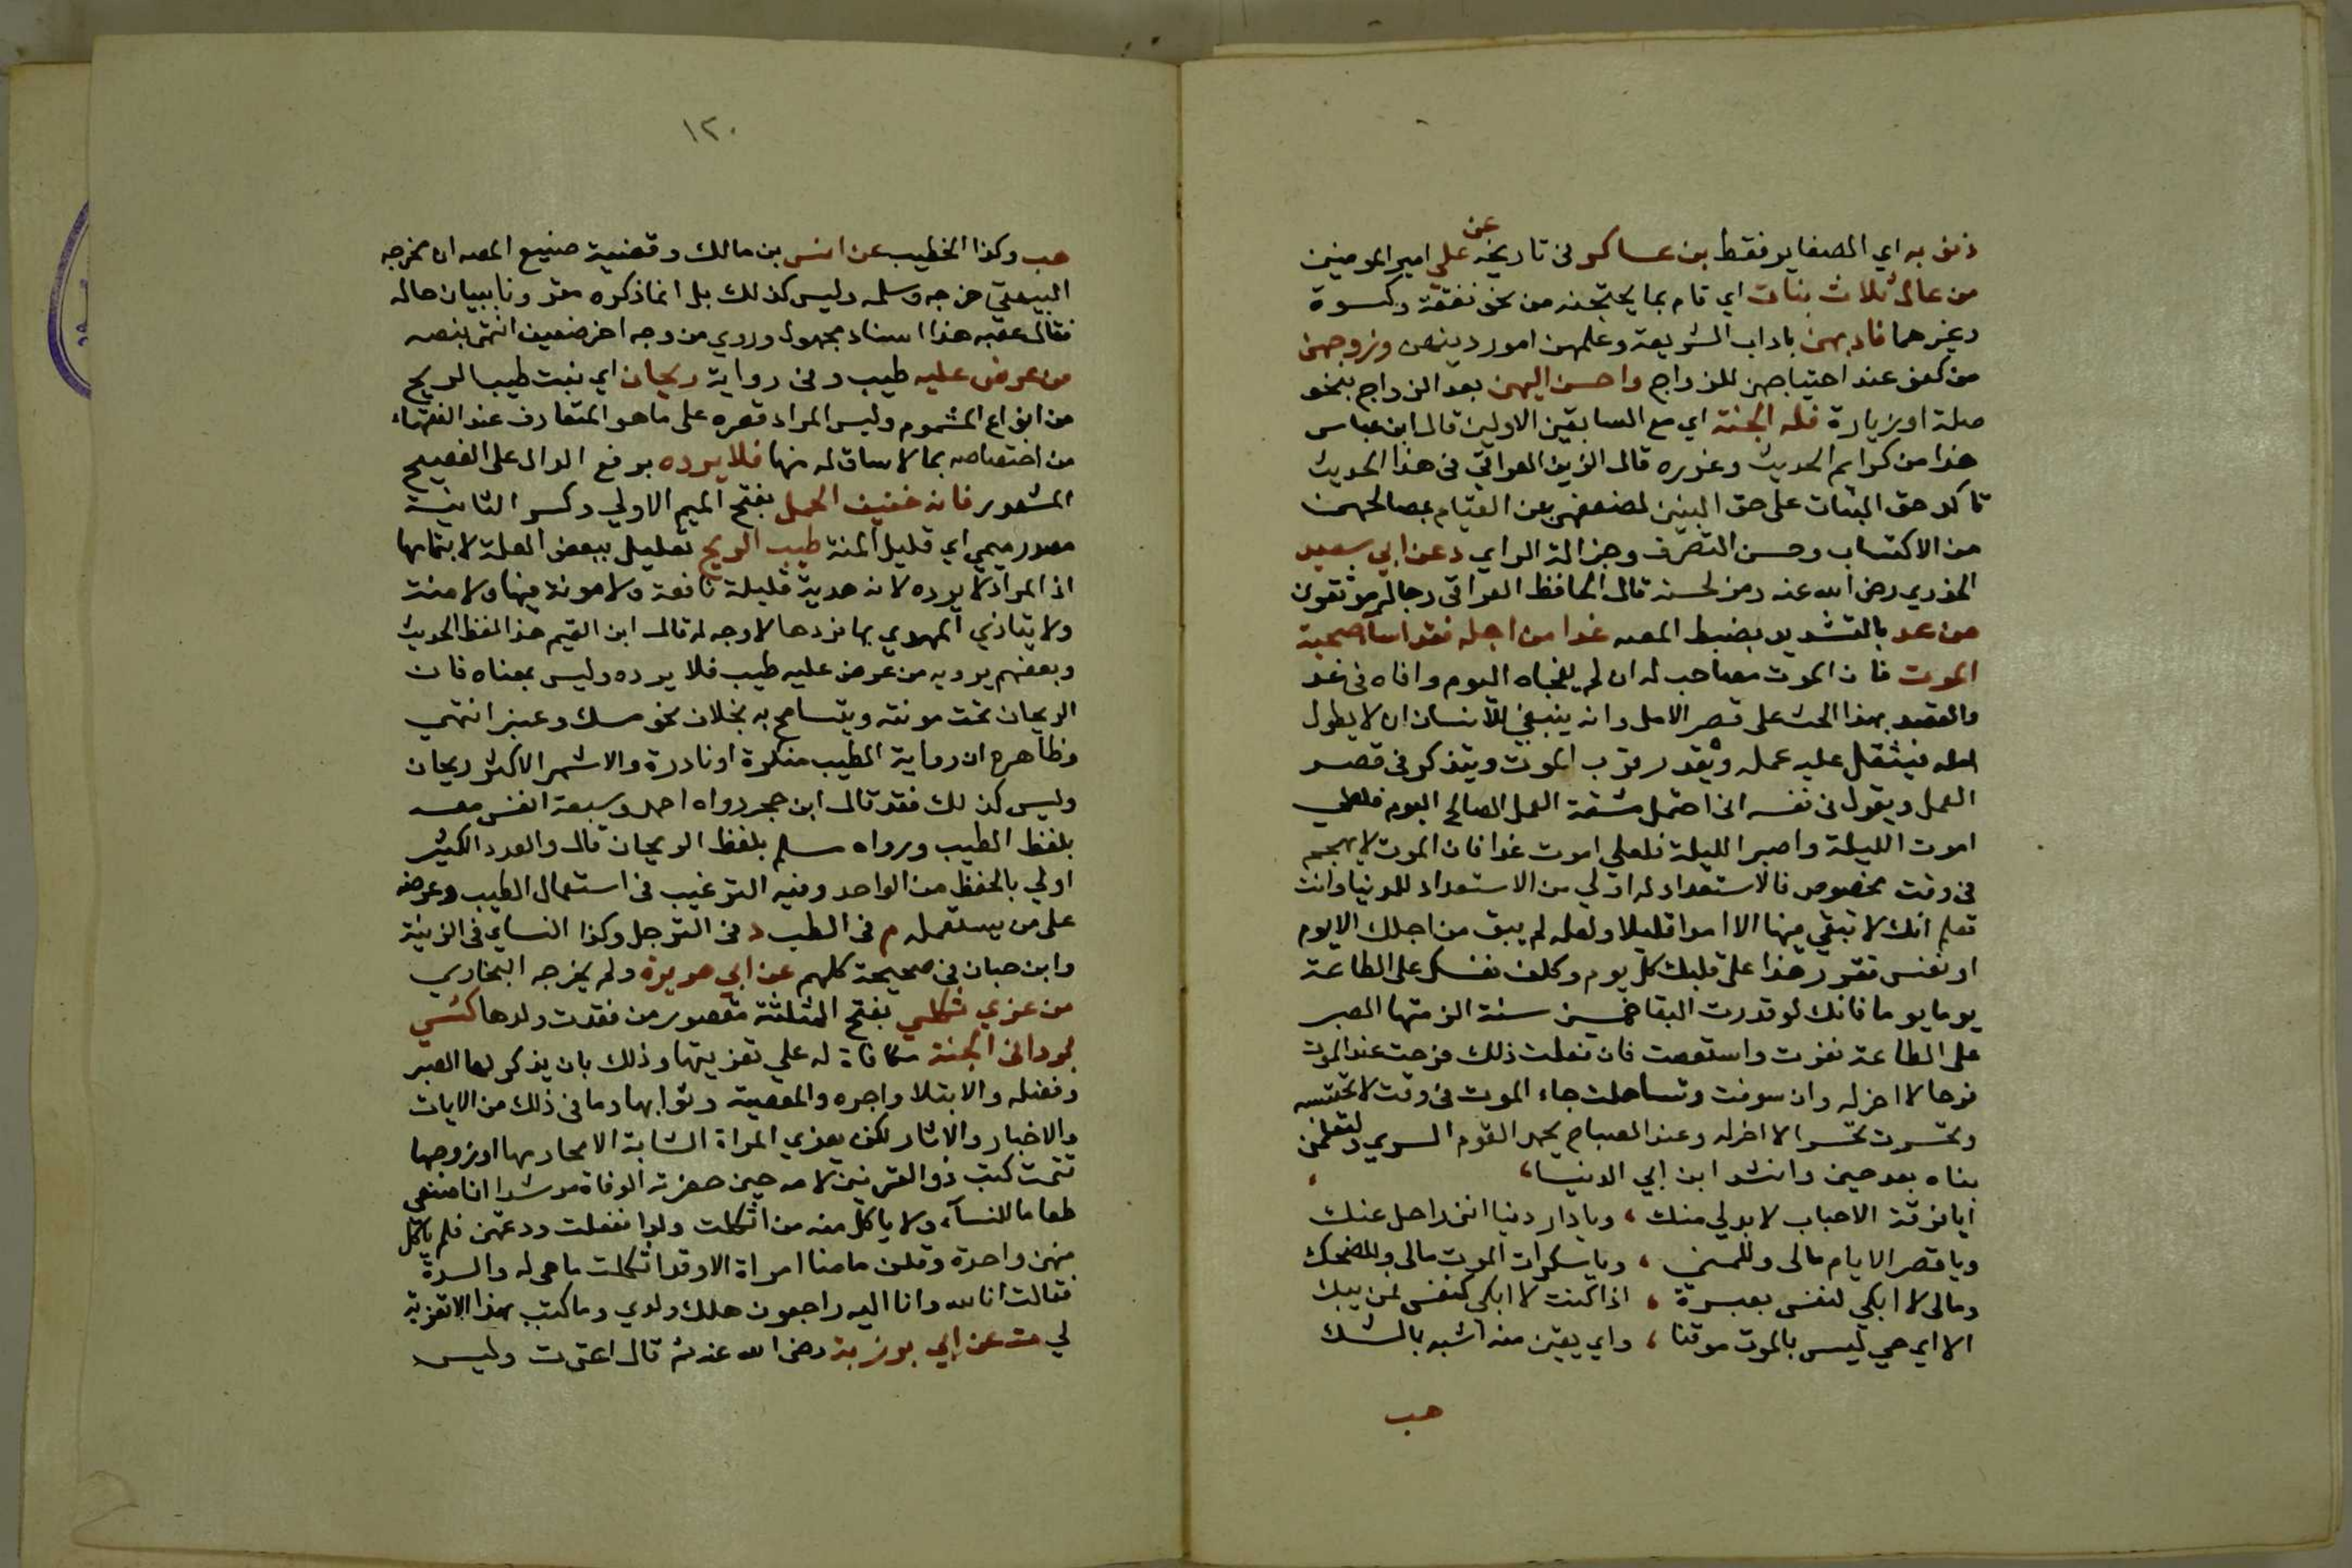 ذنوبه اي الصغاير فقط بن عساكر في تاريخه عن علي امير المومنين
من عال ثلاث بنات اي قام بما يحتجنه من نحو نفقة وكسوة
وغيرهما فادبهن باداب الشريعة وعلمهن امور دينهن وزوجهن
من كفو عند احتياجهن للزواج واحسن اليهن بعد الزواج بنحو
صلة اوزيارة فله الجنة اي مع السابقين الاولين قال ابن عباس
هذا من كرايم الحديث وغرره قال الزين العراقي في هذا الحديث
تاكد حق البنات على حق البنين لضعفهن عن القيام بمصالحهن
من الاكتساب وحسن التصرف وجزالة الراي د عن ابي سعيد
الخدري رضي الله عنه رمز لحسنه قال الحافظ العراقي رجاله موثقون
من عد بالتشديد بضبط المصه غدا من اجله فقد اسآ صحبة
الموت فان الموت مصاحب له ان لم يفجاه اليوم وافاه في غد
والقصد بهذا الحث على قصر الامل وانه ينبغي للانسان ان لا يطول
امله فيثقل عليه عمله ويقدر قرب الموت ويتذكر في قصر
العمل ويقول في نفسه اني احتمل مشقة العمل الصالح اليوم فلعلي
اموت الليلة واصبر الليلة فلعلي اموت غدا فان الموت لا يهجم
في وقت مخصوص فالاستعداد له اولي من الاستعداد للدنيا وانت
تعلم انك لا تبقي فيها الا امدا قليلا ولعله لم يبق من اجلك الا يوم
او نفس فقرر هذا على قلبك كل يوم وكلف نفسك على الطاعة
يوما يوما فانك لو قدرت البقا خمسين سنة الزمتها الصبر
على الطاعة نفرت واستعصت فان فعلت ذلك فرحت عند الموت
فرحا لا اخر له وان سوفت وتساهلت جاء الموت في وقت لا تحتسبه
وتحسرت تحسرا لا اخر له وعند الصباح يحمد القوم السري ولتعلمن
نباه بعد حين وانشد ابن ابي الدنيا،
ايا فرقة الاحباب لا بد لي منك ، ويا دار دنيا انني راحل عنك
ويا قصر الايام مالي وللمني ، ويا سكرات الموت مالي وللضحك
ومالي لا ابكي لنفسي بعبرة ، اذا كنت لا ابكي لنفسي فمن يبك
الا اي حي ليس بالموت موقنا ، واي يقين منه اشبه بالشك
هب
١٢٠
هب وكذا الخطيب عن انس بن مالك وقضية صنيع المصه ان مخرجه
البيهقي خرجه وسلمه وليس كذلك بل انما ذكره مقرونا ببيان حاله
فقال عقبه هذا اسناد مجهول وروي من وجه اخر ضعيف انتهى بنصه
من عرض عليه طيب وفي رواية ريحان اي نبت طيب الريح
من انواع المشموم وليس المراد قصره على ما هو المتعارف عند الفقهاء
من اختصاصه بما لا ساق له منها فلا يرده برفع الدال على الفصيح
المشهور فانه خفيف المحمل بفتح الميم الاولي وكسر الثانية
مصدر ميمي اي قليل المنة طيب الريح تعليل ببعض العلة لا بتمامها
اذ المراد لا يرده لانه هدية قليلة نافعة ولا مونة فيها ولا منة
ولا يتاذي المهدي بها فردها لا وجه له قال ابن القيم هذا لفظ الحديث
وبعضهم يرويه من عرض عليه طيب فلا يرده وليس بمعناه فان
الريحان تخف مونته ويتسامح به بخلاف نحو مسك وعنبر انتهي
وظاهره ان رواية الطيب منكرة او نادرة والاشهر الاكثر ريحان
وليس كذلك فقد قال ابن حجر رواه احمد وسبعة انفس معه
بلفظ الطيب ورواه مسلم بلفظ الريحان قال والعدد الكثير
اولي بالحفظ من الواحد وفيه الترغيب في استعمال الطيب وعرضه
على من يستعمله م في الطب د في الترجل وكذا النساي في الزينة
وابن حبان في صحيحه كلهم عن ابي هريرة ولم يخرجه البخاري
من عزي ثكلي بفتح المثلثة مقصور من فقدت ولدها كسي
بردا في الجنة مكافاة له علي تعزيتها وذلك بان يذكر لها الصبر
وفضله والابتلا واجره والمصيبة وثوابها وما في ذلك من الايات
والاخبار والاثار لكن يعزي المراة الشابة الا محارمها اوزوجها
تتمت كتب ذو القرنين لامه حين حضرته الوفاة مرشدا ان اصنعي
طعاما للنسآء ولا ياكل منه من اثكلت ولدا ففعلت ودعتهن فلم ياكل
منهن واحدة وقلن ما منا امراة الا وقد اثكلت ما هي له والدة
فقالت انا لله وانا اليه راجعون هلك ولدي وما كتب بهذا الا تعزية
لي ت عن ابي برزة رضي الله عنه ثم قال اعني ت وليس